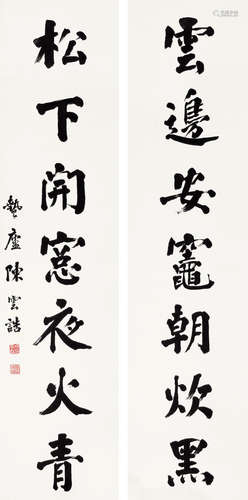 雲邊安竈朝炊黑
松下開窓夜火青
蟄廬陳雲誥